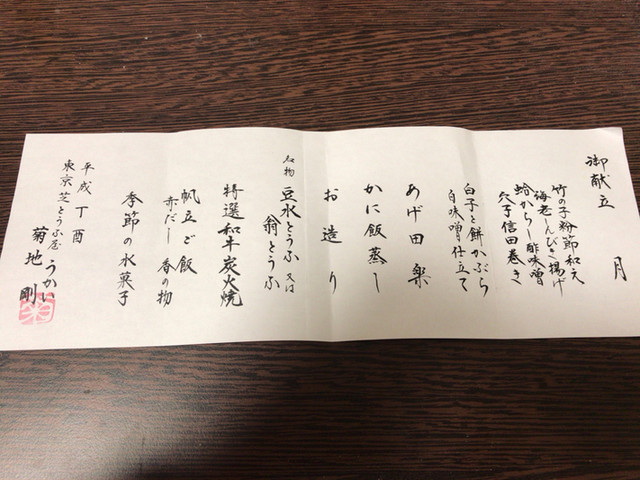 御献立
月
竹の子粉節和え
海老しんびき揚げ
蛤からし酢味噌
穴子信田巻き
白子と餅かぶら
白味噌仕立て
あげ田楽
かに飯蒸し
お造り
名物 豆水とうふ 又は
翁とうふ
特選和牛炭火焼
帆立ご飯
赤だし 香の物
季節の水菓子
平成丁酉
東京芝とうふ屋うかい
菊地 剛